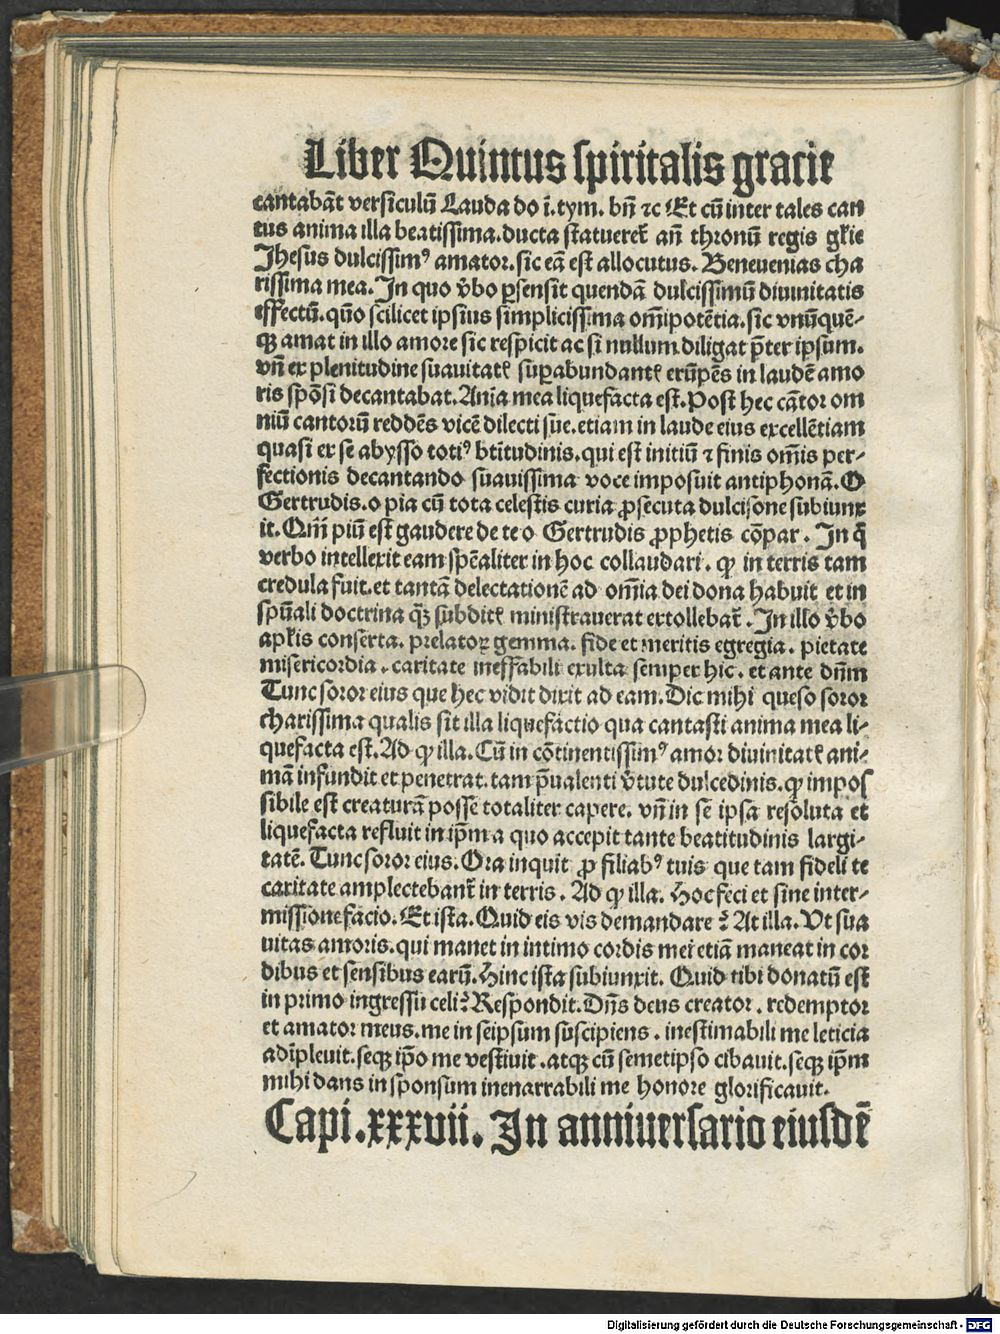 Liber Quintus spiritalis gracie
cantabāt versiculū Lauda do i. tym. bñ ⁊c Et cū inter tales can
tus anima illa beatissima. ducta statueret̄ añ thronū regis gl̄ie
Jhesus dulcissimꝰ amator. sic eā est allocutus. Beneuenias cha
rissima mea. In quo v̄bo ꝑsensit quendā dulcissimū diuinitatis
effectū. quō scilicet ipsius simplicissima om̄ipotētia. sic vnūquē-
qꝫ amat in illo amore sic respicit ac si nullum diligat p̄ter ipsum.
vñ ex plenitudine suauitatꝭ suꝑabundantꝭ erūpēs in laudē amo
ris spōsi decantabat. Aīa mea liquefacta est. Post hec cātor om
niū cantorū reddēs vicē dilecti sue. etiam in laude eius excellētiam
quasi ex se abysso totiꝰ btītudinis. qui est initiū ⁊ finis om̄is per-
fectionis decantando suauissima voce imposuit antiphonā. O
Gertrudis. o pia cū tota celestis curia ꝓsecuta dulcisone subiunx
it. Qm̄ piū est gaudere de te o Gertrudis ꝓphetis cōpar. In q̄
verbo intellexit eam spēaliter in hoc collaudari. ꝙ in terris tam
credula fuit. et tantā delectationē ad om̄ia dei dona habuit et in
spūali doctrina qꝫ subditꝭ ministrauerat extollebat̄. In illo v̄bo
apl̄is conserta. prelatoꝝ gemma. fide et meritis egregia. pietate
misericordia. caritate ineffabili exulta semper hic. et ante dn̄m
Tunc soror eius que hec vidit dixit ad eam. Dic mihi queso soror
charissima qualis sit illa liquefactio qua cantasti anima mea li-
quefacta est. Ad ꝙ illa. Cū in cōtinentissimꝰ amor diuinitatꝭ ani-
mā infundit et penetrat. tam p̄ualenti v̄tute dulcedinis. ꝙ impos
sibile est creaturā posse totaliter capere. vñ in se ipsa resoluta et
liquefacta refluit in ip̄m a quo accepit tante beatitudinis largi-
tatē. Tunc soror eius. Ora inquit ꝓ filiabꝰ tuis que tam fideli te
caritate amplectebant̄ in terris. Ad ꝙ illa. Hoc feci et sine inter-
missione facio. Et ista. Quid eis vis demandare? At illa. Vt sua
uitas amoris. qui manet in intimo cordis mei etiā maneat in cor
dibus et sensibus earū. Hinc ista subiunxit. Quid tibi donatū est
in primo ingressu celi? Respondit. Dn̄s deus creator. redemptor
et amator meus. me in seipsum suscipiens. inestimabili me leticia
adīpleuit. seqꝫ ip̄o me vestiuit. atqꝫ cū semetipso cibauit. seqꝫ ip̄m
mihi dans in sponsum inenarrabili me honore glorificauit.
Capi. xxxvii. In anniuersario eiusdē
Digitalisierung gefördert durch die Deutsche Forschungsgemeinschaft - DFG